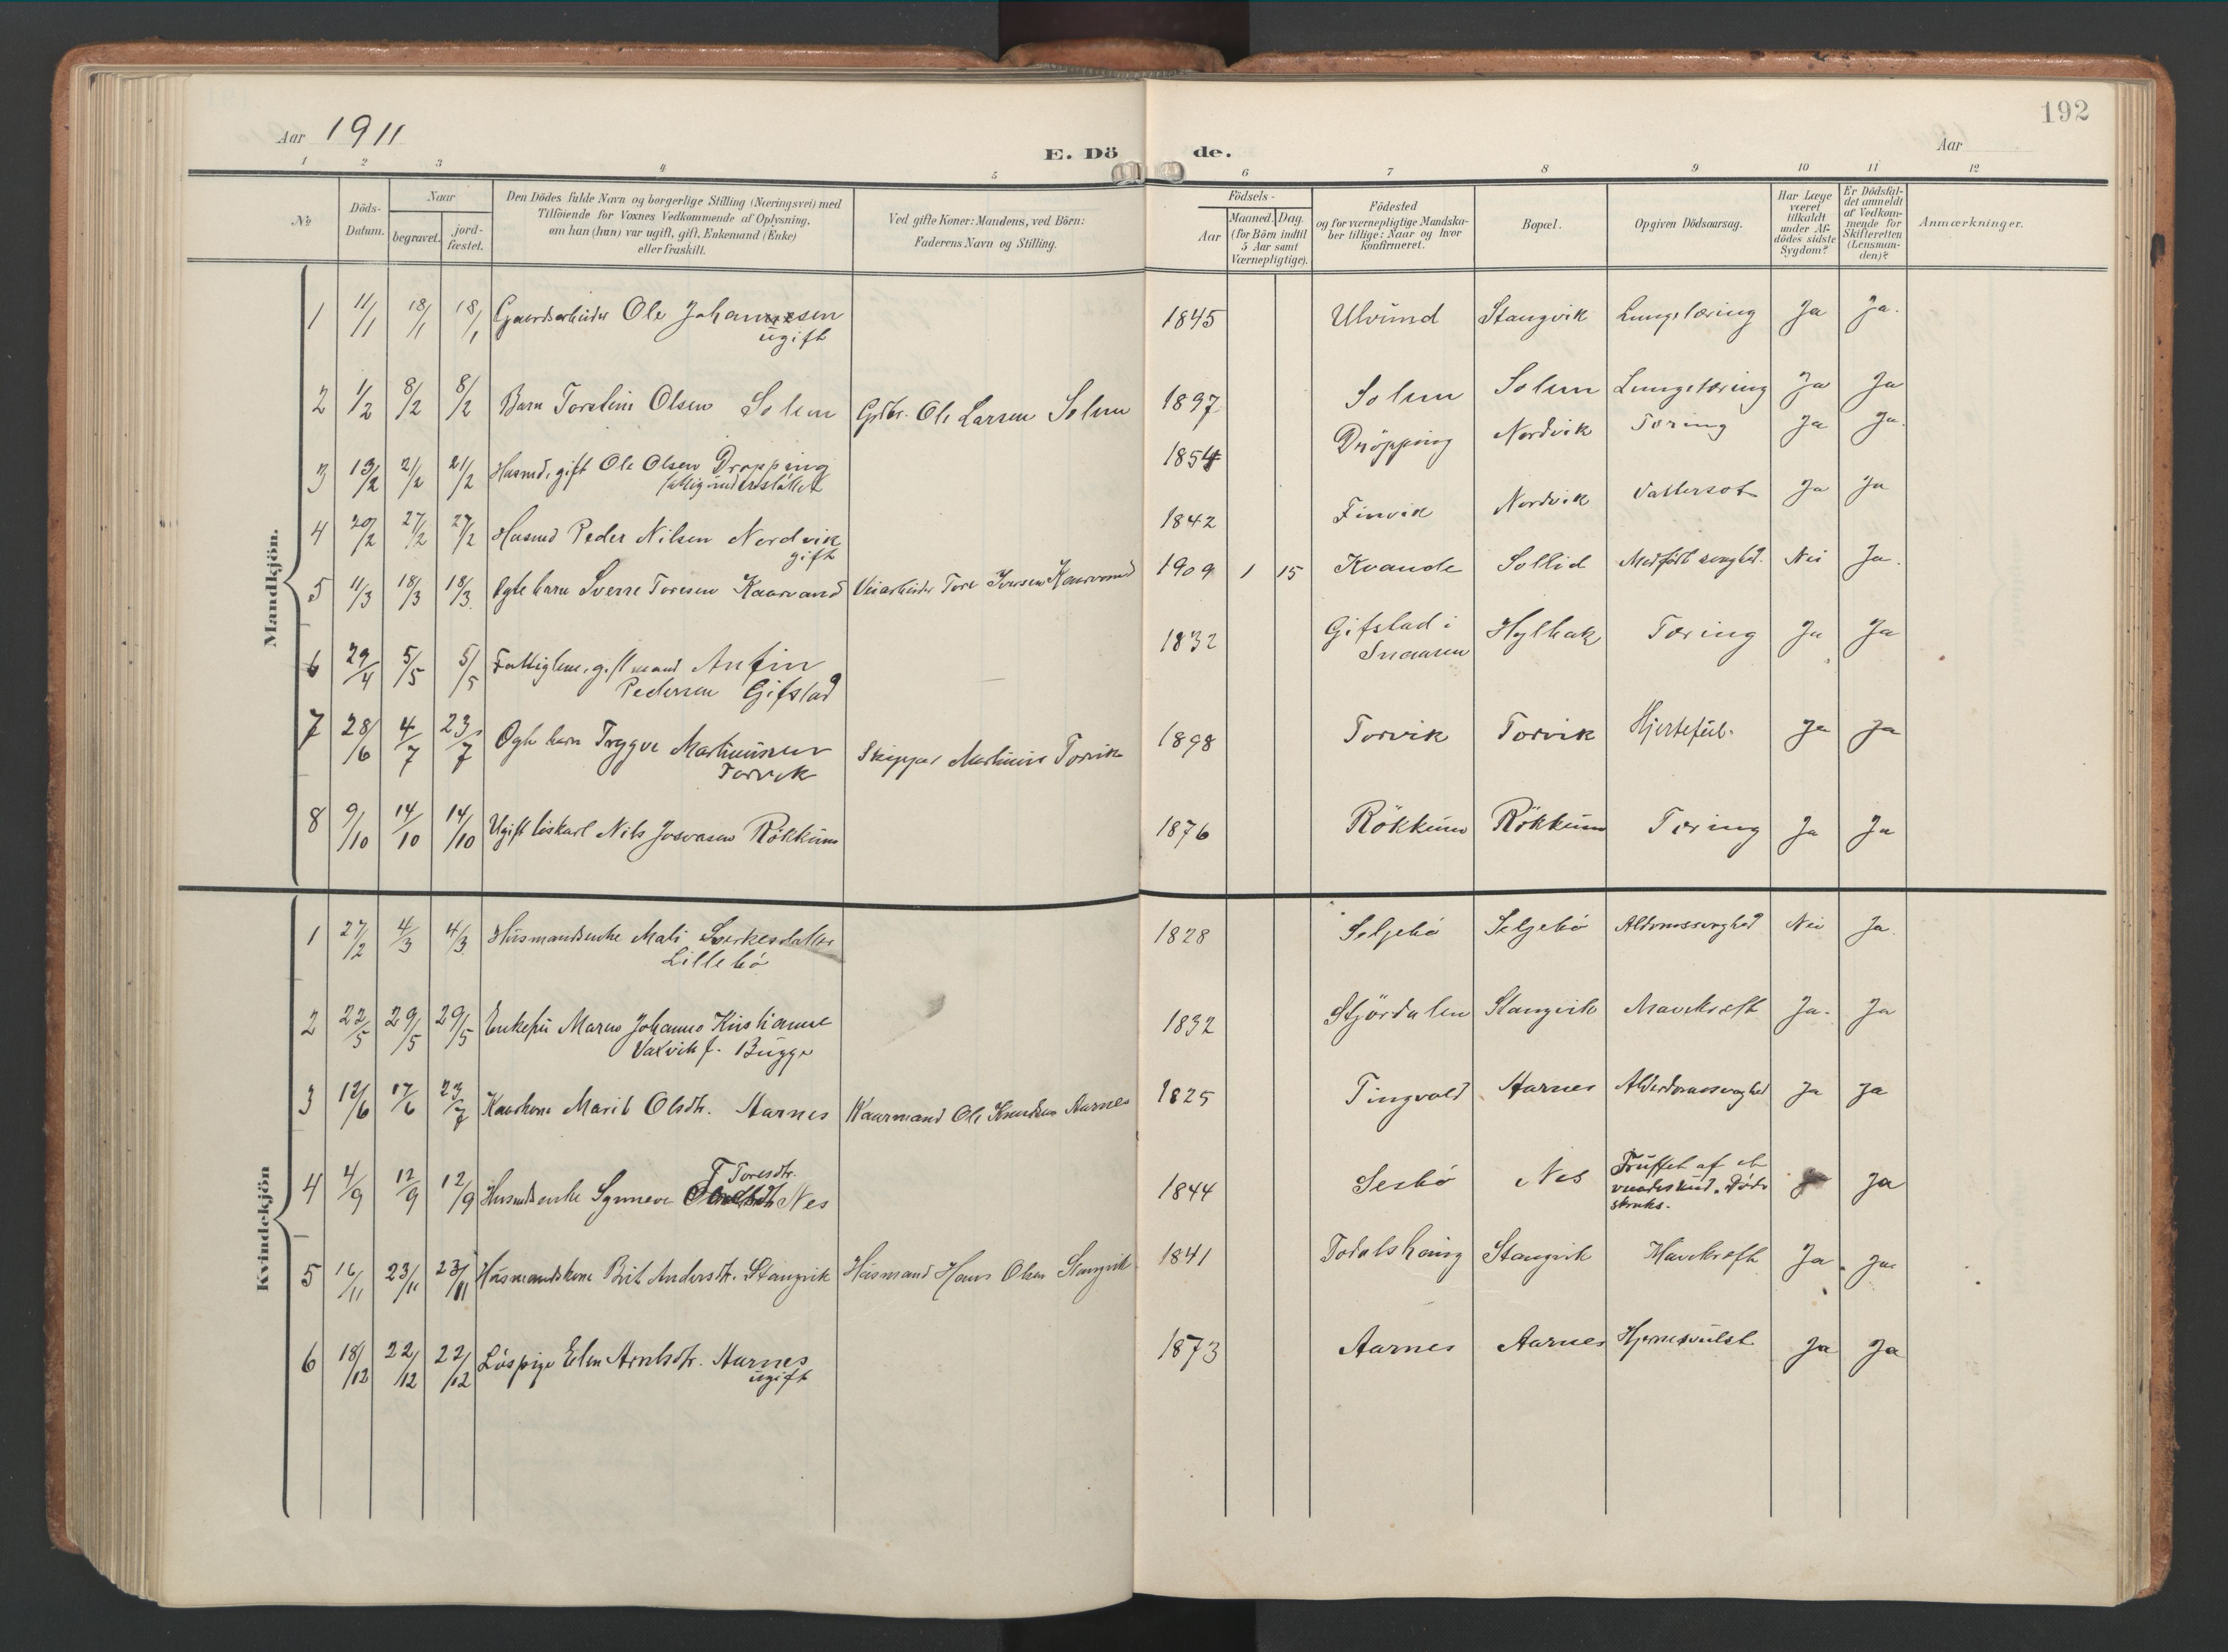 192
Aar 1911
E. Dö de.
Aar
1 2 3 4 5 6 7 8 9 10 11 12
№
Döds-Datum.
Naar
begravet.
jord-fæstet.
Den Dödes fulde Navn og borgerlige Stilling (Næringsvei) med
Tilföiende for Voxnes Vedkommende af Oplysning,
om han (hun) var ugift, gift, Enkemand (Enke)
eller fraskilt.
Ved gifte Koner: Mandens, ved Börn:
Faderens Navn og Stilling.
Födsels-
Aar
Maaned. Dag.
(for Börn indtil
5 Aar samt
Værnepligtige).
Födested
og for værnepligtige Mandska-
ber tillige: Naar og hvor
konfirmeret.
Bopæl.
Opgiven Dödsaarsag.
Har Læge
været
tilkaldt
under Af-
dödes sidste
Sygdom?
Er Dödsfal-
det anmeldt
af Vedkom-
mende for
Skifteretten
(Lensman-
den)?
Anmærkninger.
Mandkjön.
1 11/1 18/1 18/1 Gaardarbeider Ole Johannesen 1845 Ulvund Stangvik Lungetæring Ja Ja.
ugift
2 1/2 8/2 8/2 Barn Torstein Olsen Solem Gdbr. Ole Larsen Solem 1897 Solem Solem Lungetæring Ja Ja
3 13/2 21/2 21/2 Husmd, gift Ole Olsen Dropping 1854 Dröpping Nordvik Tæring Ja Ja.
fattigunderstöttet
4 20/2 27/2 27/2 Husmd Peder Nilsen Nordvik 1842 Finvik Nordvik Vattersot Ja Ja
gift
5 11/3 18/3 18/3 Egte barn Sverre Toresen Kaarvand Veiarbeider Tore Iversen Kaarvand 1909 1 15 Kvande Sollid Medfödt svaghed. Nei Ja.
6 29/4 5/5 5/5 Fattiglem, gift mand Anfin 1832 Gifstad i Hylbak Tæring Ja Ja
Pedersen Gifstad Snaasen
7 28/6 4/7 23/7 Egte barn Trygve Martinusen Skipper Martinus Torvik 1898 Torvik Torvik Hjertefeil. Ja Ja
Torvik
8 9/10 14/10 14/10 Ugift löskarl Nils Josvasen Rökkum 1876 Rökkum Rökkum Tæring Ja Ja
Kvindekjön
1 27/2 4/3 4/3 Husmandsenke Mali Sverkesdatter 1828 Seljebö Seljebö Alderdomssvaghed Nei Ja.
Lillebö
2 22/5 29/5 29/5 Enkefru Maren Johanne Kristianne 1832 Stjördalen Stangvik Mavekræft Ja. Ja
Vaxvik f. Bugge
3 12/6 17/6 23/7 Kaarkone Marit Olsdtr. Aarnes Kaarmand Ole Knudsen Aarnes 1825 Tingvold Aarnes Alderdomssvaghed Ja Ja
4 4/9 12/9 12/9 Husmdsenke Synneve Toresdtr. Nes 1844 Sesbö Nes Truffet af et
vaadeskud. Døde
straks. Ja
5 16/11 23/11 23/11 Husmandskone Brit Andersdtr. Stangvik Husmand Hans Olsen Stangvik 1841 Todalshaug Stangvik Mavekræft Ja Ja
6 18/12 22/12 22/12 Löspige Elen Arntsdtr. Aarnes 1873 Aarnes Aarnes Hjernesvulst Ja Ja
ugift